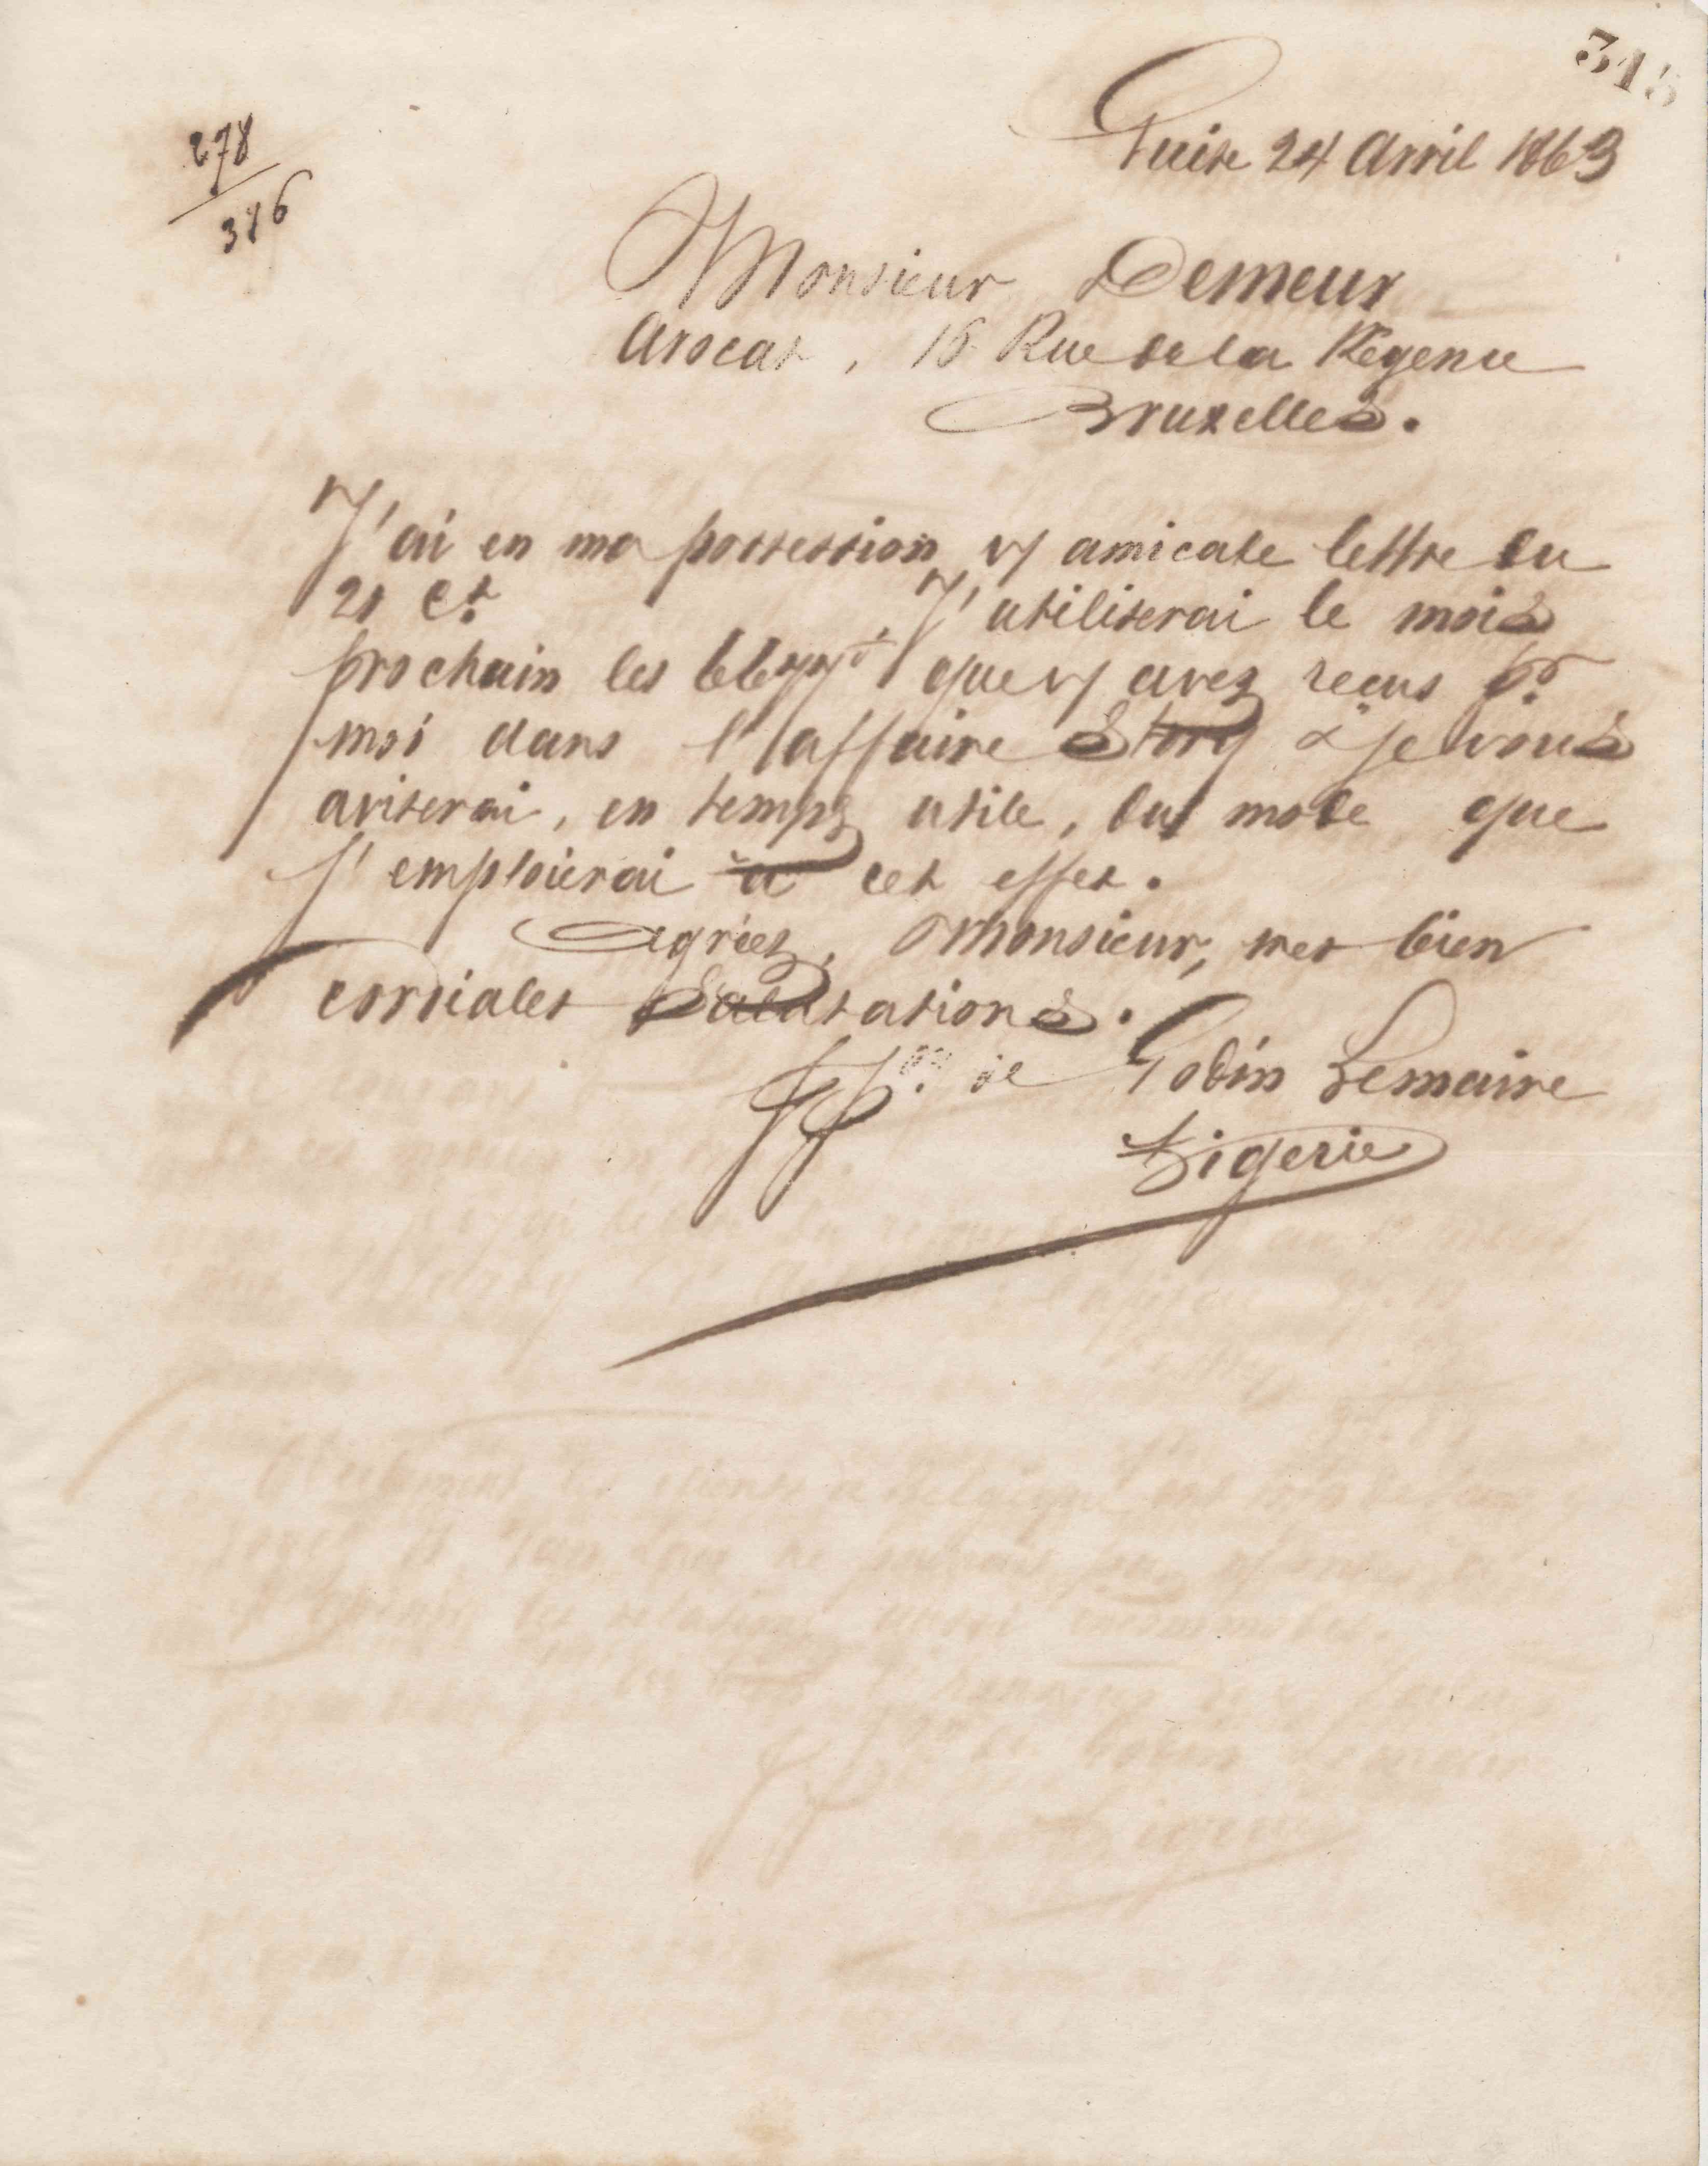 315
278
386
Guise 24 Avril 1863
Monsieur Demeur
Avocat, 16 Rue de la Régence
Bruxelles.
J'ai en ma possession vs amicale lettre du
21 Ct. J'utiliserai le mois
prochain les que vs avez reçus pr.
moi dans l'affaire Story & je vous
aviserai, en temps utile, du mode que
j'emploierai à cet effet.
Agréez, Monsieur, mes bien
cordiales Salutations.
de Godin Lemaire
Sigerie